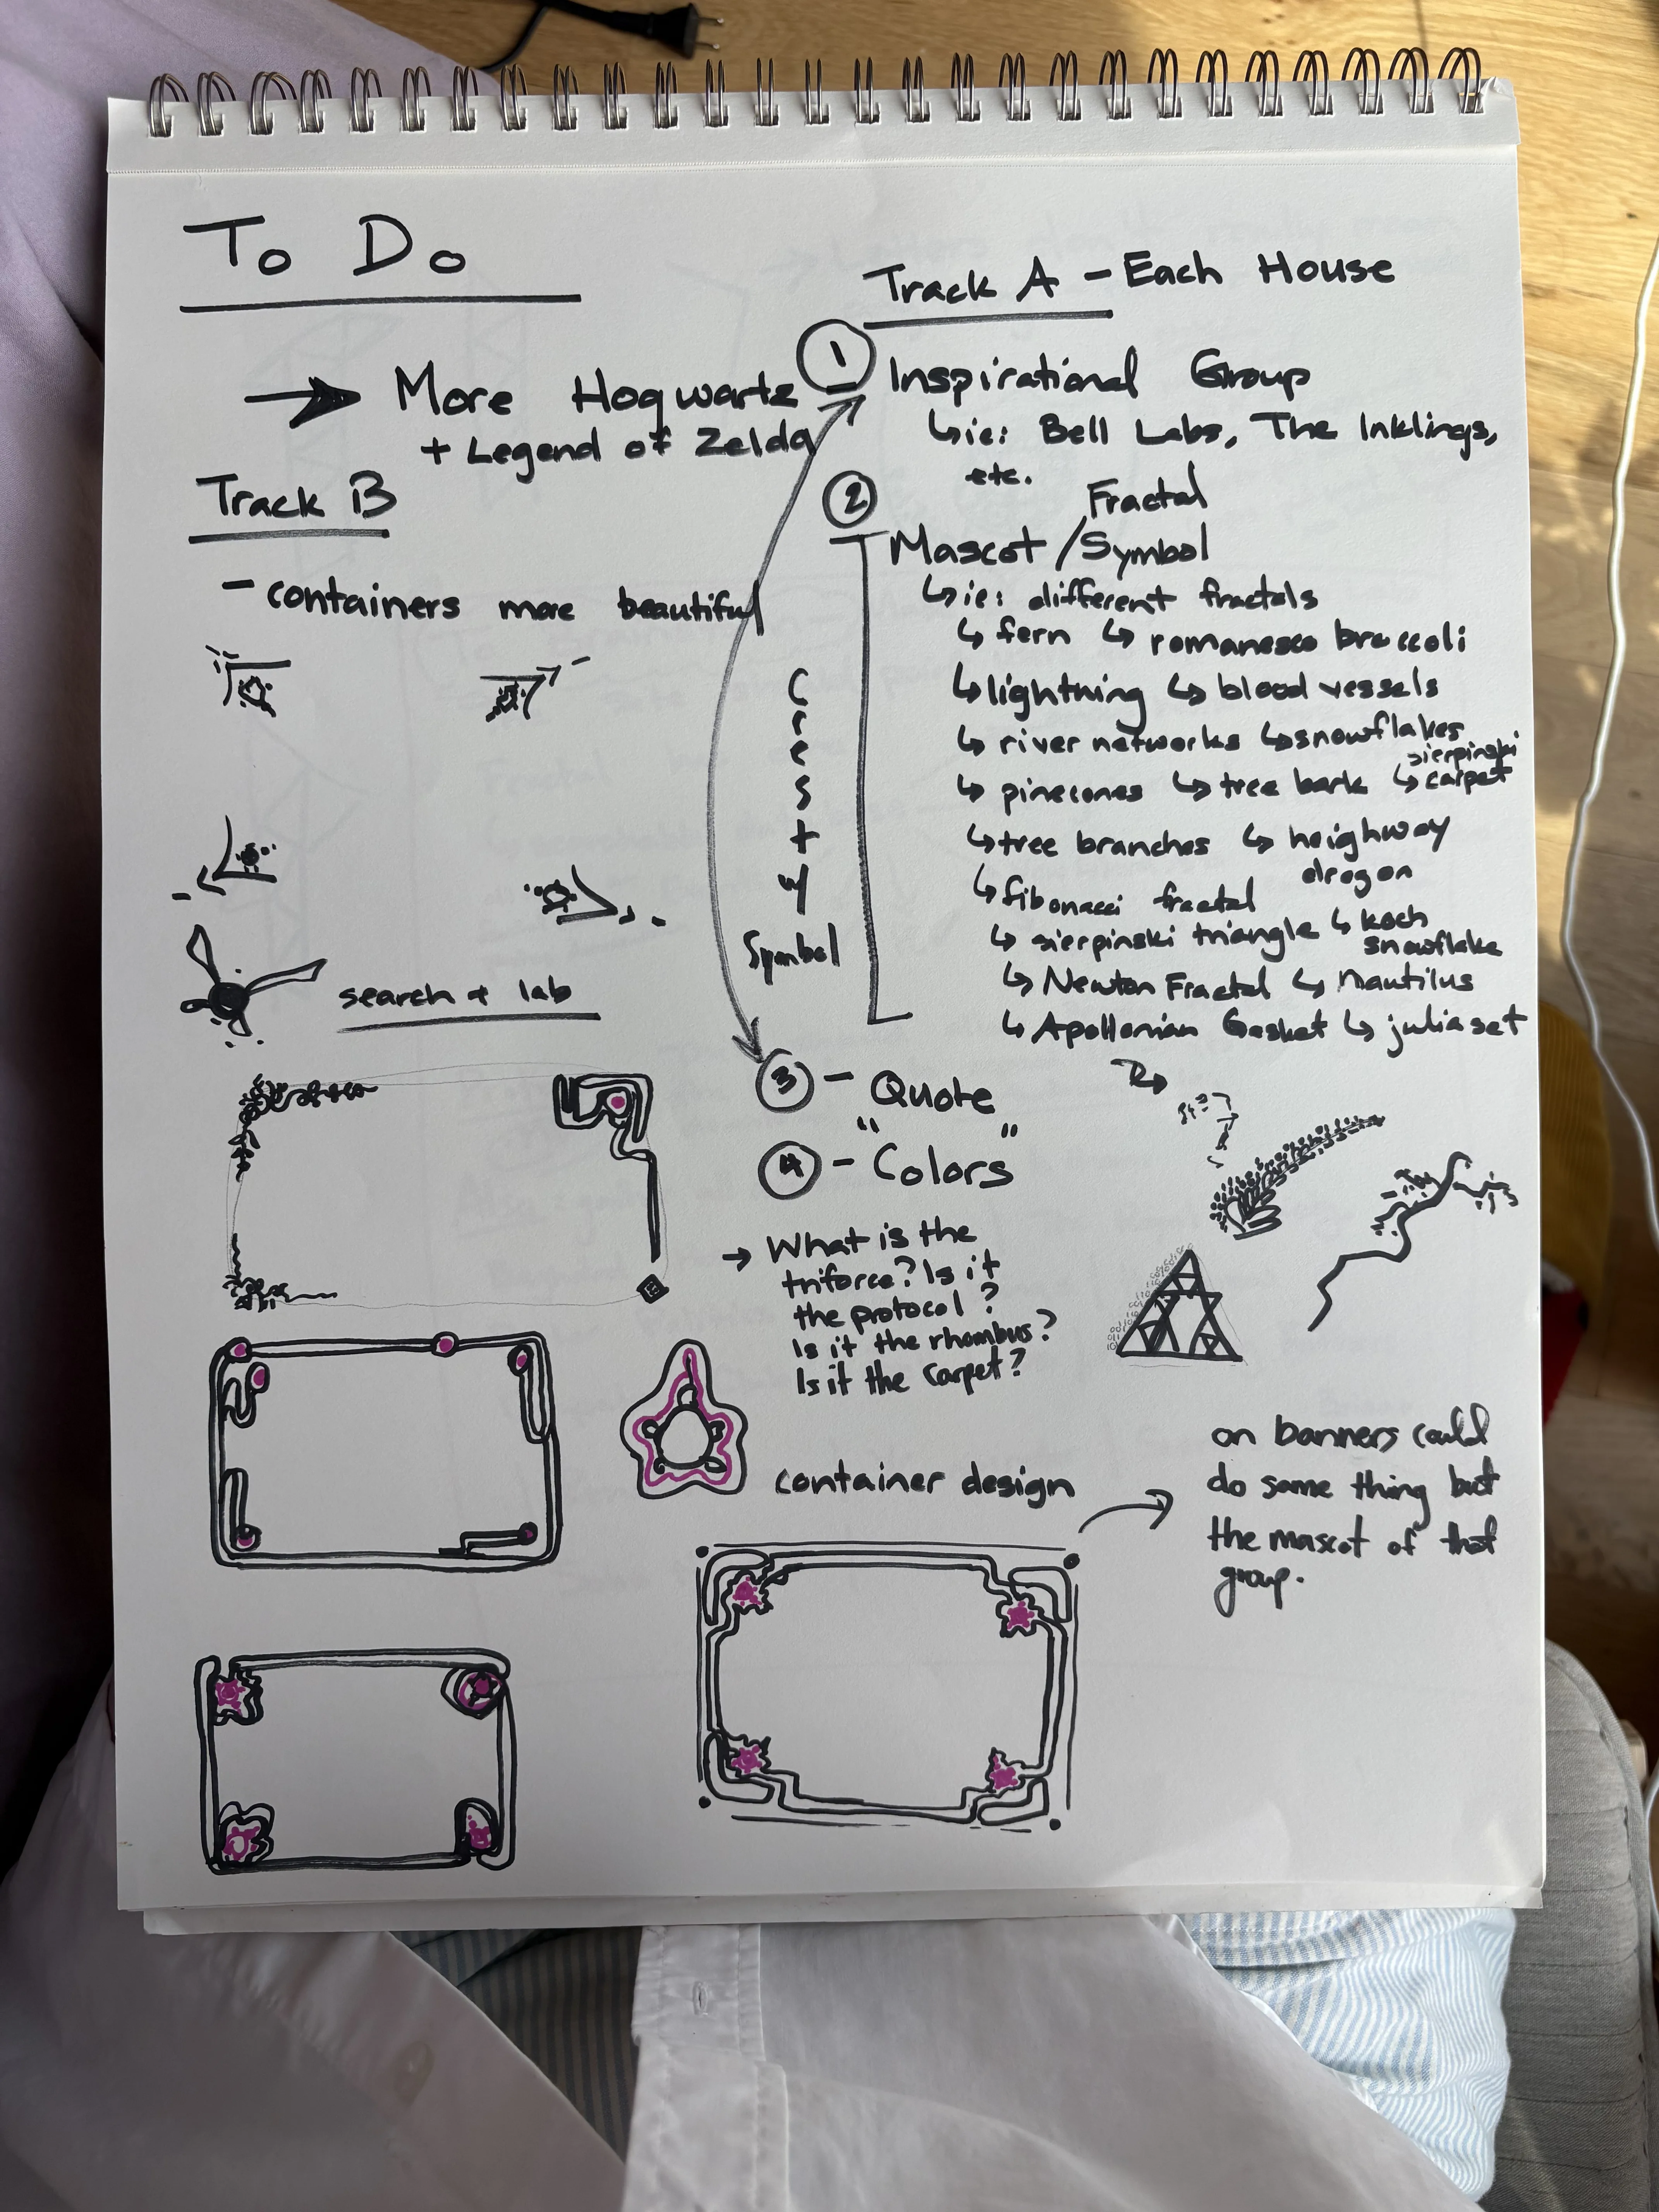 To Do
→ More Hogwarts
+ Legend of Zelda
Track B
- containers more beautiful
search + lab
Track A - Each House
1 Inspirational Group
↳ ie: Bell Labs, The Inklings,
etc.
2 Fractal
Mascot / Symbol
↳ ie: different fractals
↳ fern ↳ romanesco broccoli
↳ lightning ↳ blood vessels
↳ river networks ↳ snowflakes
↳ pinecones ↳ tree bark ↳ sierpinski carpet
↳ tree branches ↳ heighway dragon
↳ fibonacci fractal
↳ sierpinski triangle ↳ koch snowflake
↳ Newton Fractal ↳ nautilus
↳ Apollonian Gasket ↳ julia set
Crest w/
Symbol
3 - Quote
" "
4 - Colors
→ What is the
triforce? Is it
the protocol?
Is it the rhombus?
Is it the carpet?
container design
on banners could
do same thing but
the mascot of that
group.